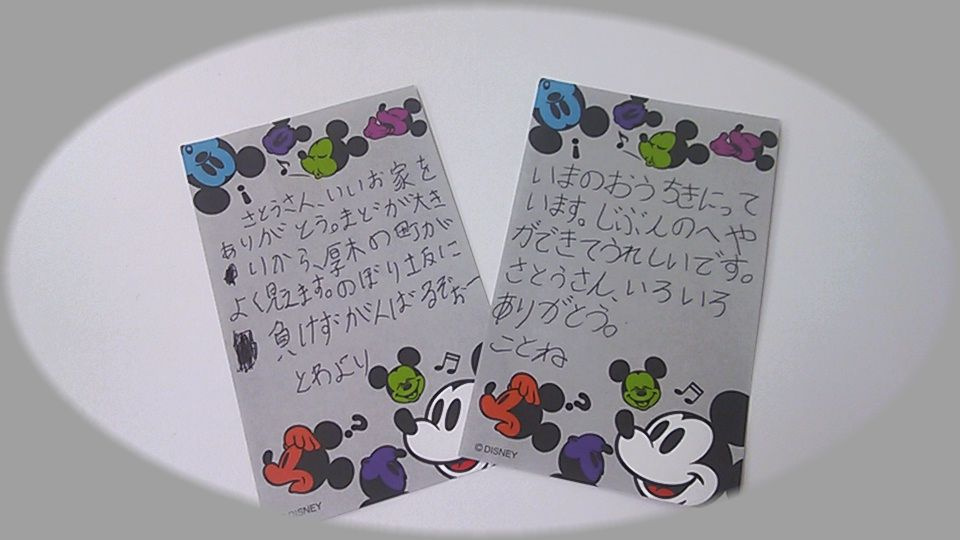 さとうさん、いいお家を
ありがとう。まどが大き
いから、厚木の町が
よく見えます。のぼり坂に
負けずがんばるぞぉー
とわより
©DISNEY
いまのおうちきにって
います。じぶんのへや
ができてうれしいです。
さとうさん、いろいろ
ありがとう。
ことね
©DISNEY